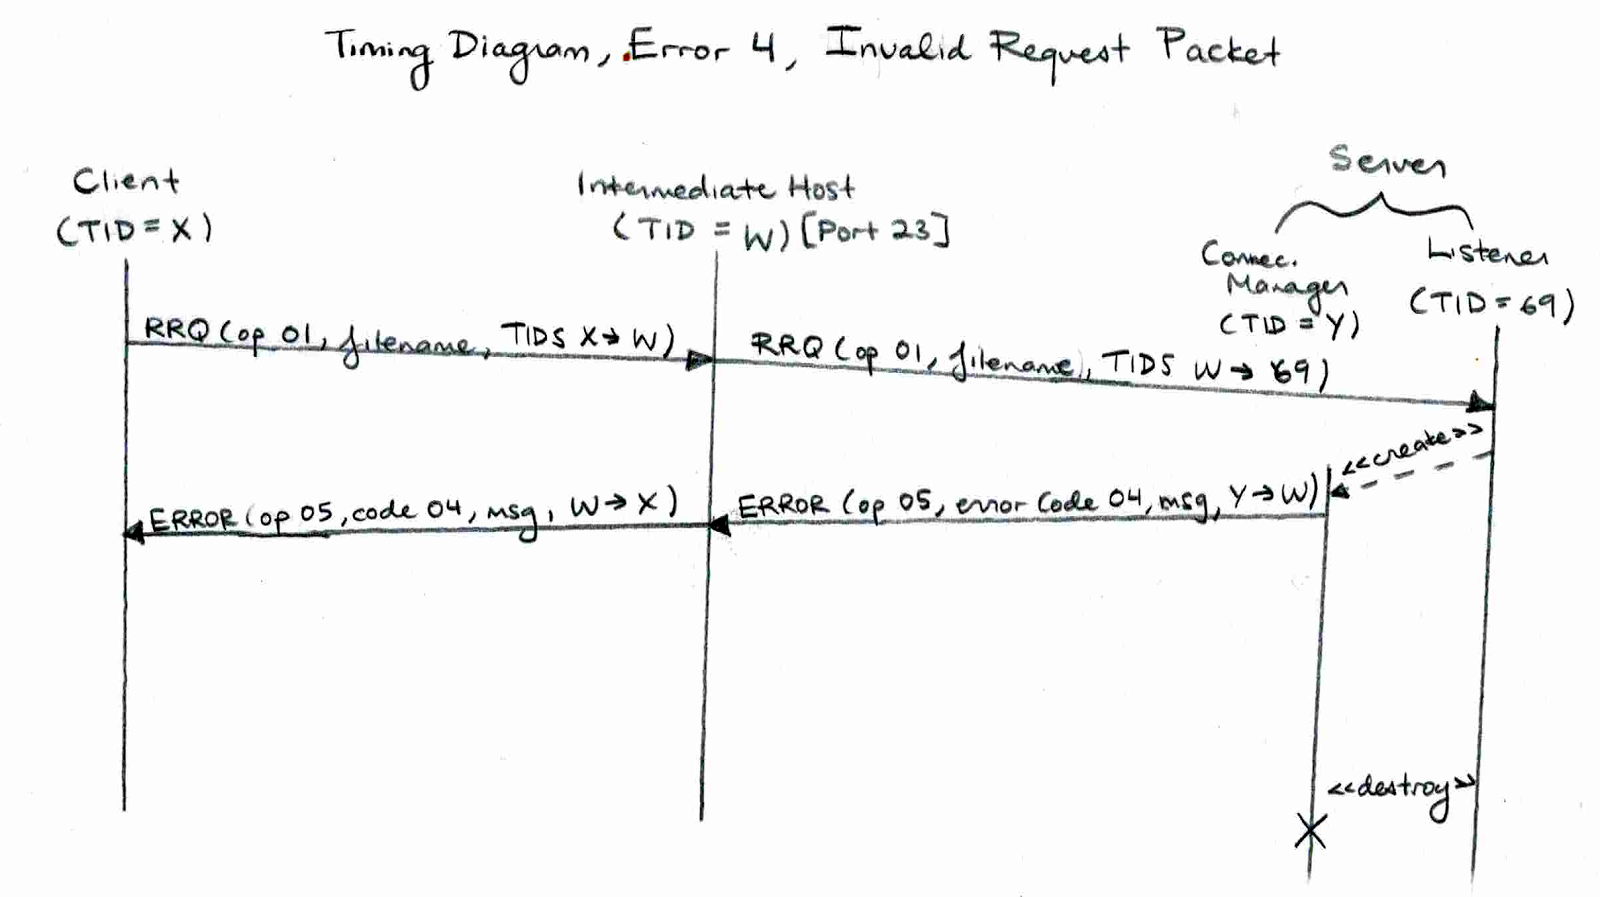 Timing Diagram, Error 4, Invalid Request Packet
Server
Client
(TID = X)
Intermediate Host
(TID = W) [Port 23]
Connec.
Manager
(TID = Y)
Listener
(TID = 69)
RRQ (op 01, filename, TIDS X→W)
RRQ (op 01, filename), TIDS W→69)
<<create>>
ERROR (op 05, code 04, msg, W→X)
ERROR (op 05, error code 04, msg, Y→W)
<<destroy>>